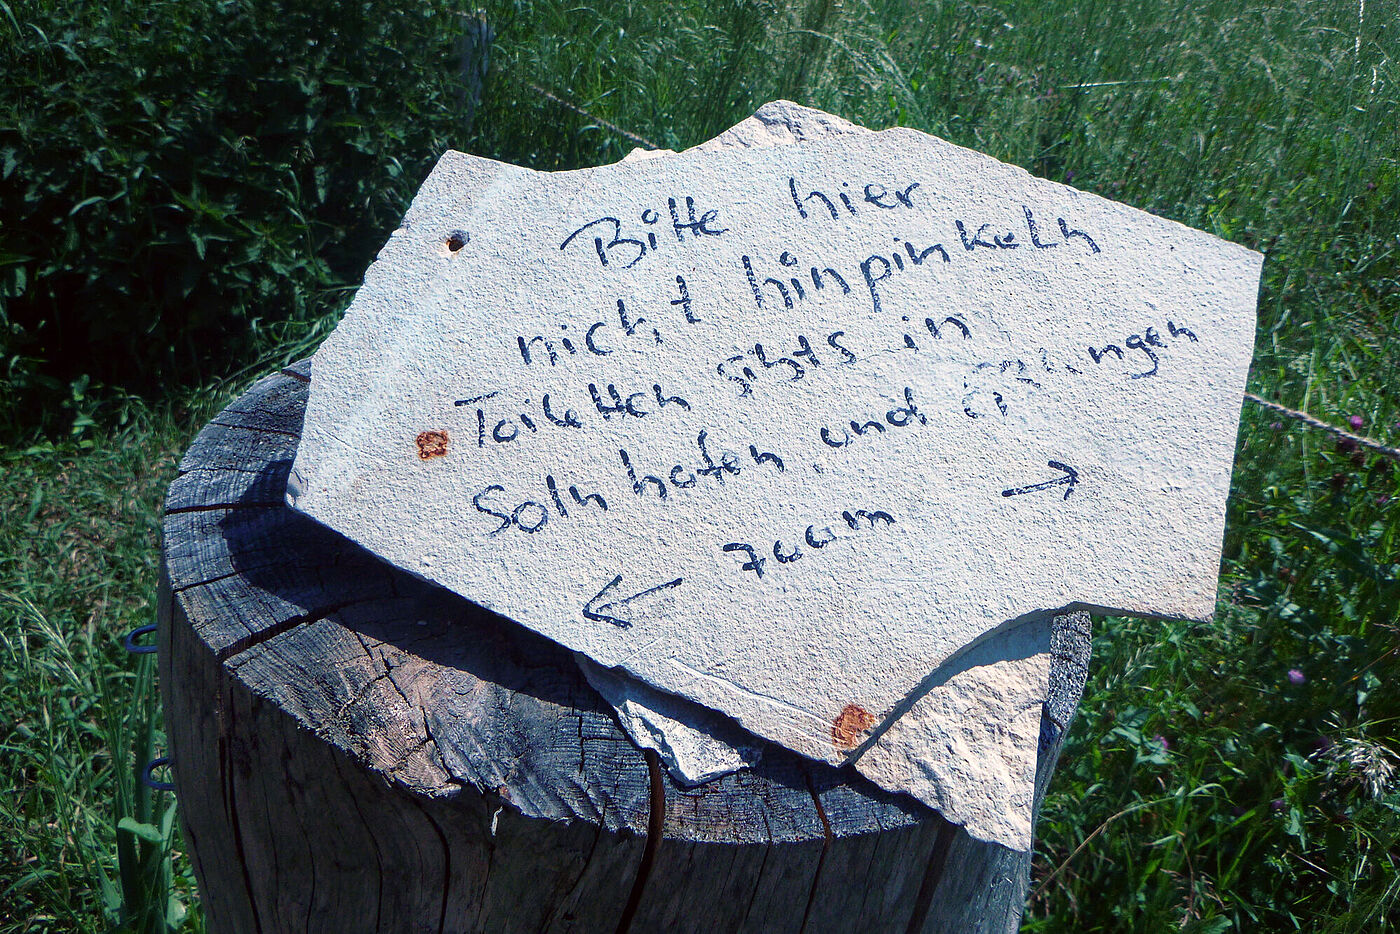 Bitte hier
nicht hinpinkeln
Toiletten gibts in
Solnhofen und
← 700m →